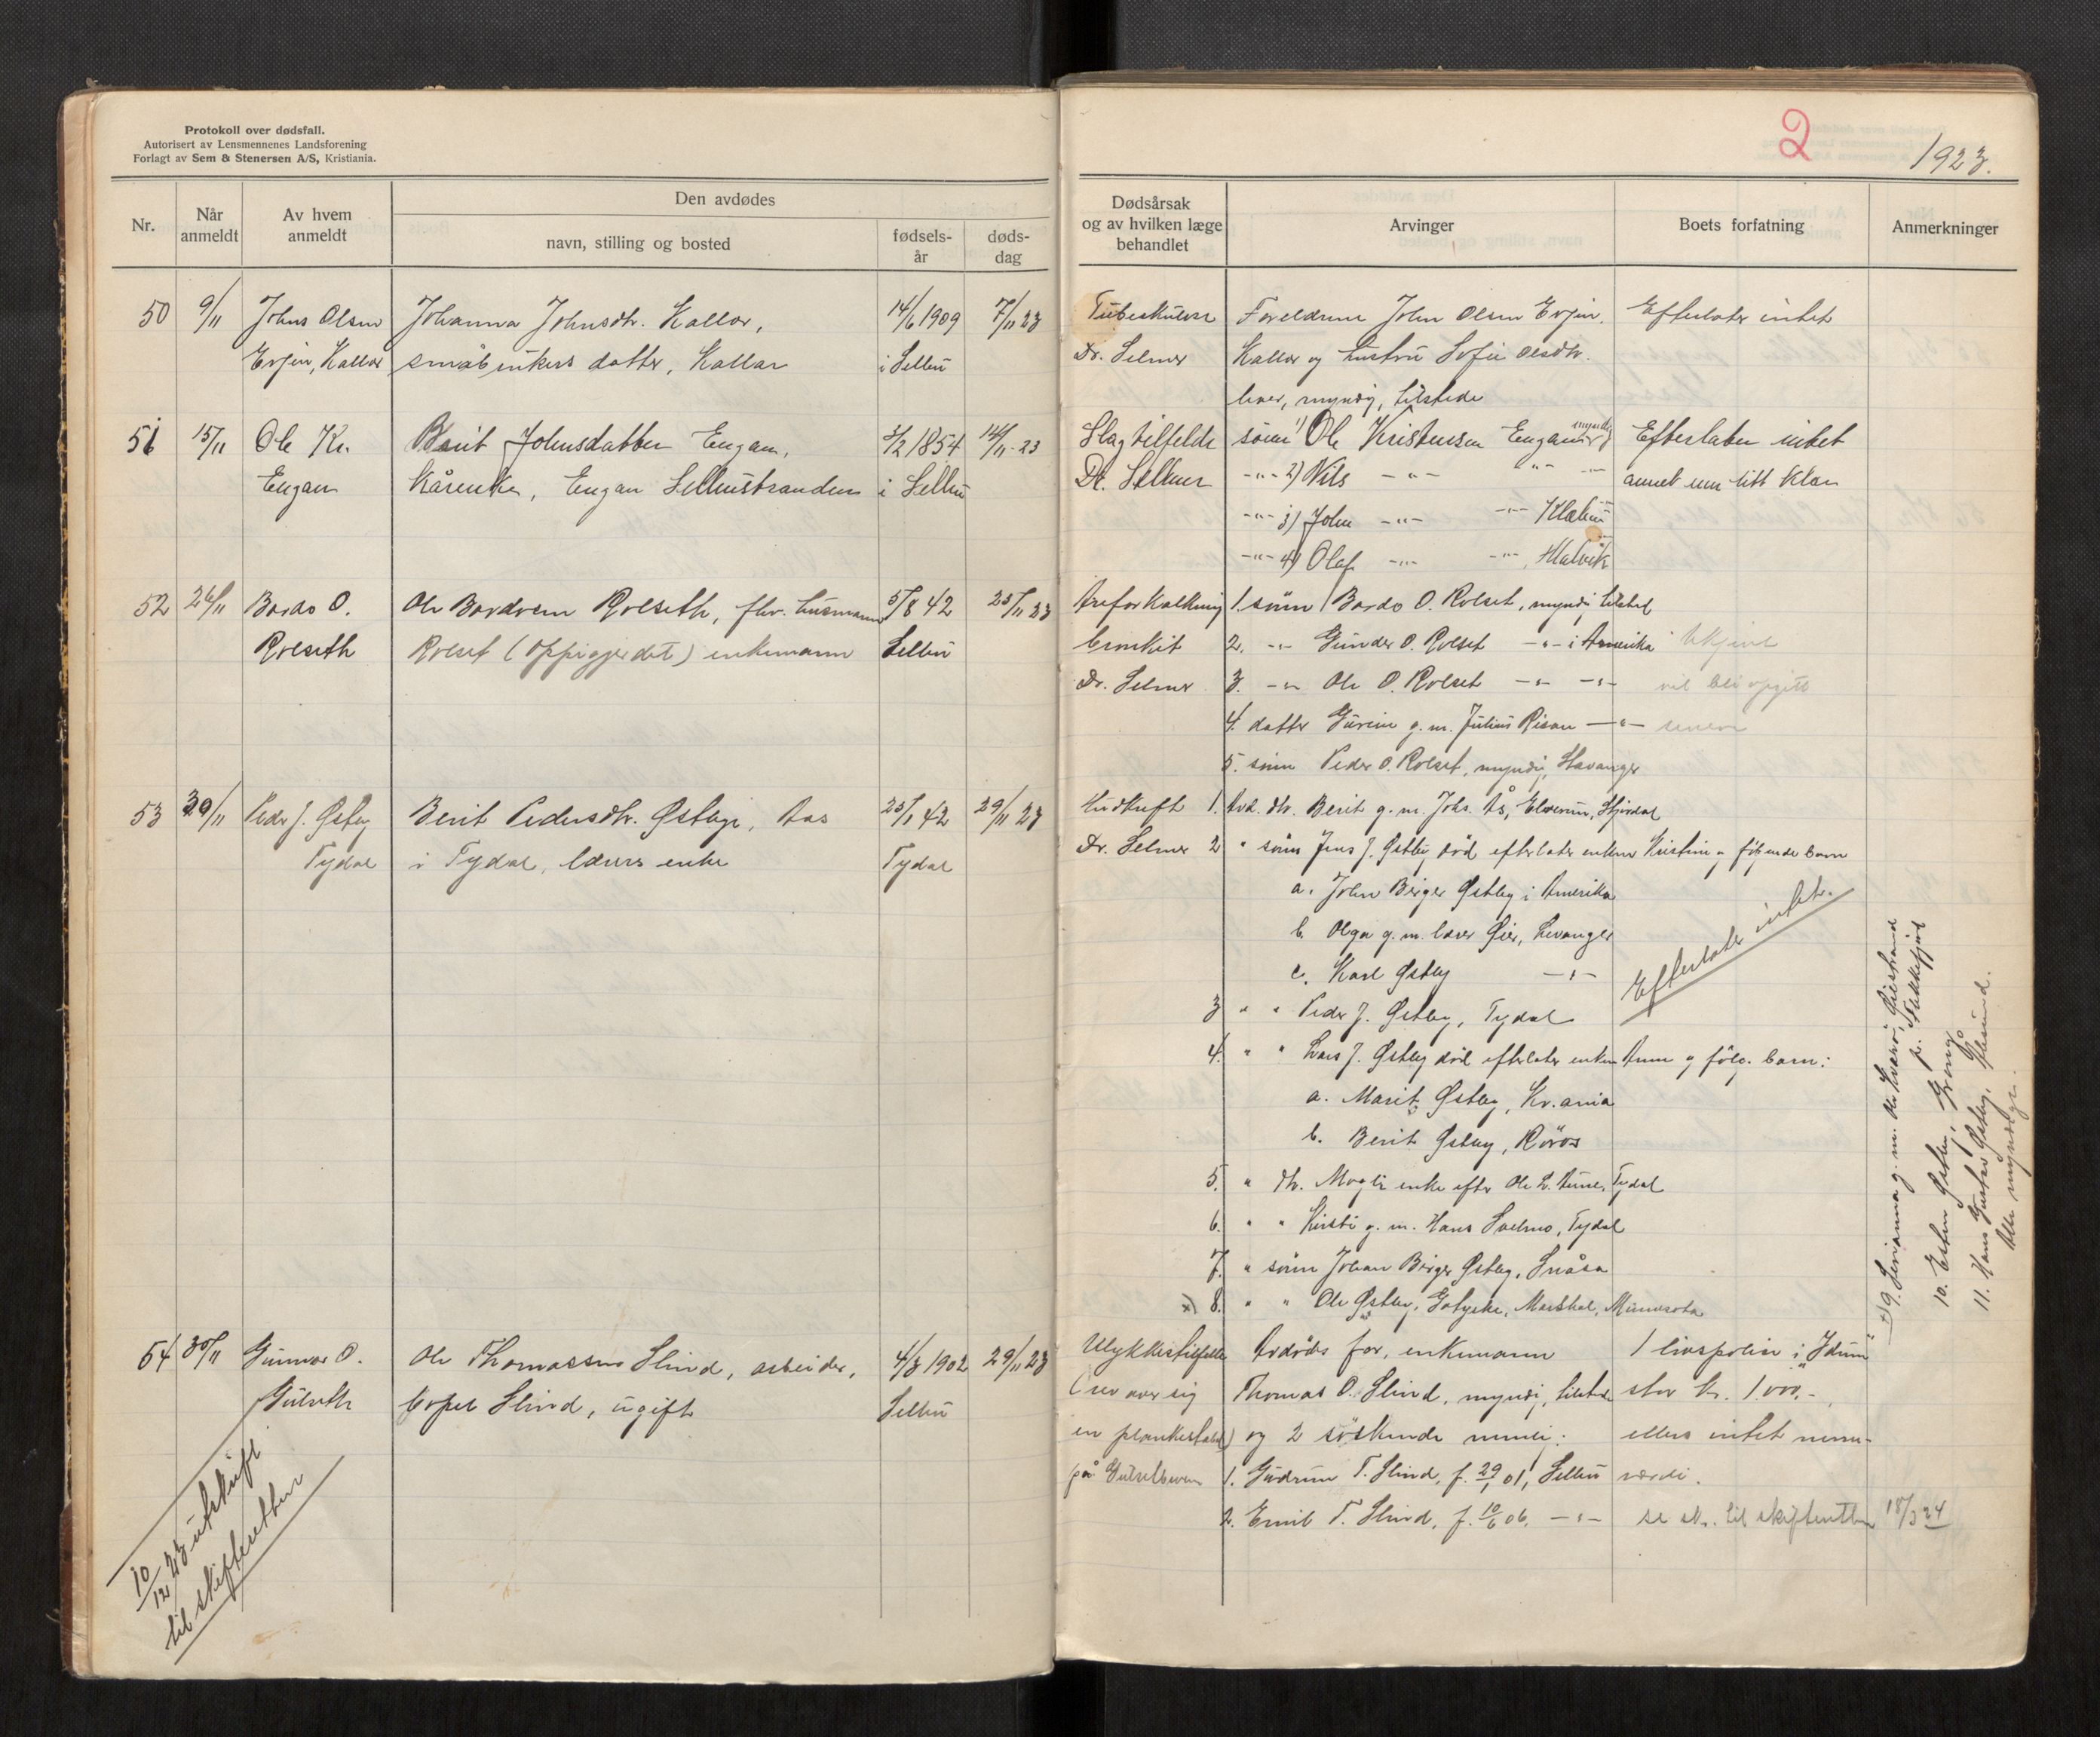 Protokoll over dødsfall.
Autorisert av Lensmennenes Landsforening
Forlagt av Sem & Stenersen A/S, Kristiania.
Nr.
Når anmeldt
Av hvem anmeldt
Den avdødes
navn, stilling og bosted
fødsels-år
døds-dag
50 9/11 Johns Olsen Johanna Johnsdtr. Kallar, 14/6 1909 7/11 23
Evjen, Kallar småbrukers datter, Kallar i Selbu
51 15/11 Ole Kr. Berit Johnsdatter Engan, 3/2 1854 14/11-23
Engan Kårenke, Engan Selbustranden i Selbu
52 26/11 Bardo O. Ole Bardosen Rolseth, fhv. husmann 5/8 42 25/11 23
Rolseth Rolset (Oppigjerdet) enkemann Selbu
53 30/11 Peder J. Østby Berit Pedersdtr. Østby, Aas 25/1 42 29/11 23
Tydal i Tydal, lærers enke Tydal
54 30/11 Gunnar O. Ole Thomassen Slind, arbeider, 4/3 1902 29/11 23
Gulseth Slind, ugift Selbu
10/12 23 utskrift
til skifteretten
2
1923.
Dødsårsak og av hvilken læge behandlet
Arvinger
Boets forfatning
Anmerkninger
Tuberkulose Foreldrene John Olsen Evjen, Efterlater intet
Dr. Selmer Kallar og hustru Sofie Olsdtr.
lever, myndig, tilstede
Slagtilfelde sönn 1) Ole Kristensen Engan myndig Efterlater intet
Dr. Selmer -"- 2) Nils -"- -"- annet enn litt klær
-"- 3) John -"- -"- Klæbu
-"- 4) Olaf -"- -"- Malvik
Åreforkalkning 1. sönn Bardo O. Rolset, myndig tilsted
bronkit 2. -"- Gunder O. Rolset -"- i Amerika Ukjent
Dr. Selmer 3. -"- Ole O. Rolset -"- -"- vil bli opgitt
4. datter Guruine g. m. Julius Risan -"- senere
5. sönn Peder O. Rolset, myndig, Stavanger
Hudkreft 1. Avd. dtr. Berit g. m. Johs. Ås, Elverum, Stjørdal
Dr. Selmer 2 " sönn Jens J. Østby död efterlater enken Kristine og følgende barn
a. John Birger Østby i Amerika
b. Olga g. m. lærer Øier, Levanger
c. Karl Østby -"-
Efterlater intet.
3 " " Peder J. Østby, Tydal
4. " " Lars J. Østby død efterlater enken Anne og følg. barn:
a. Marit Østby, Kr.ania
b. Berit Østby, Röros
5. " dtr. Magli enke efter Ole L. Aune, Tydal
6. " " Kirsti g. m. Hans Svelmo, Tydal
7. " sönn Johan Birger Østby, Snåsa
x) 8. " " Ole Østby, Marshal, Minnesota
x) 9. g. m.
10. Esten Østby, Grong
11. Hans Gustav Østby, Ålesund.
Alle myndige.
Ulykkestilfelle Avdödes far, enkemann 1 livspolise i "Idun"
(rev over sig Thomas O. Slind, myndig, tilsted stor kr. 1.000,-
en plankestabel) og 2 söskende nemlig: ellers intet nevne-
på 1. Gudrun T. Slind, f. 29/1 01, Selbu verdi.
2. Emil T. Slind, f. 10/6 06. -"- se sk. til skifteretten 18/3 24